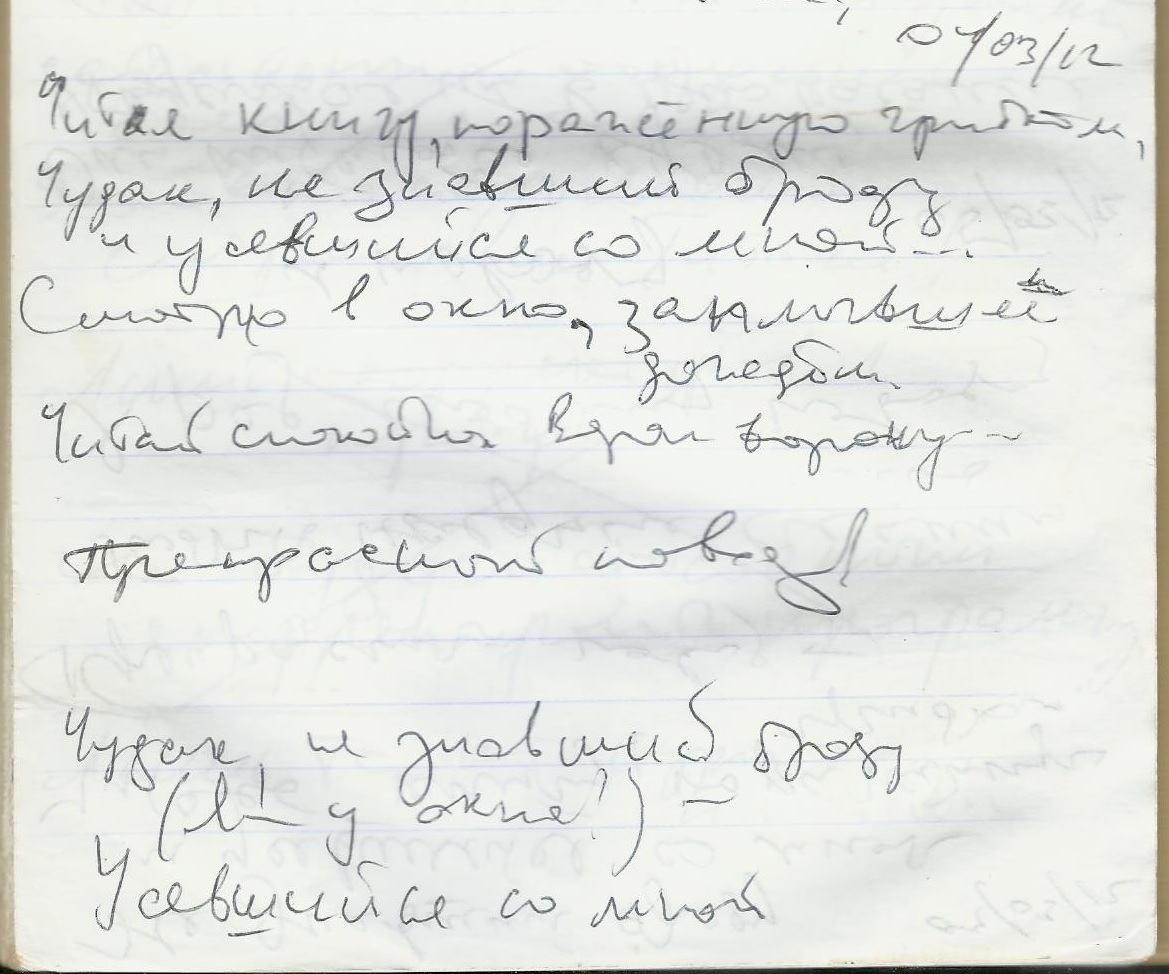 07/03/12
Читая книгу, поражённую грибком,
Чудак, не знавший броду
и усевшийся со мной –.
Смотрю в окно, заплывшее
дождём.
Читай спокойно
Прекрасной повод!
Чудак, не знавший броду
у окна!) –
Усевшийся со мной